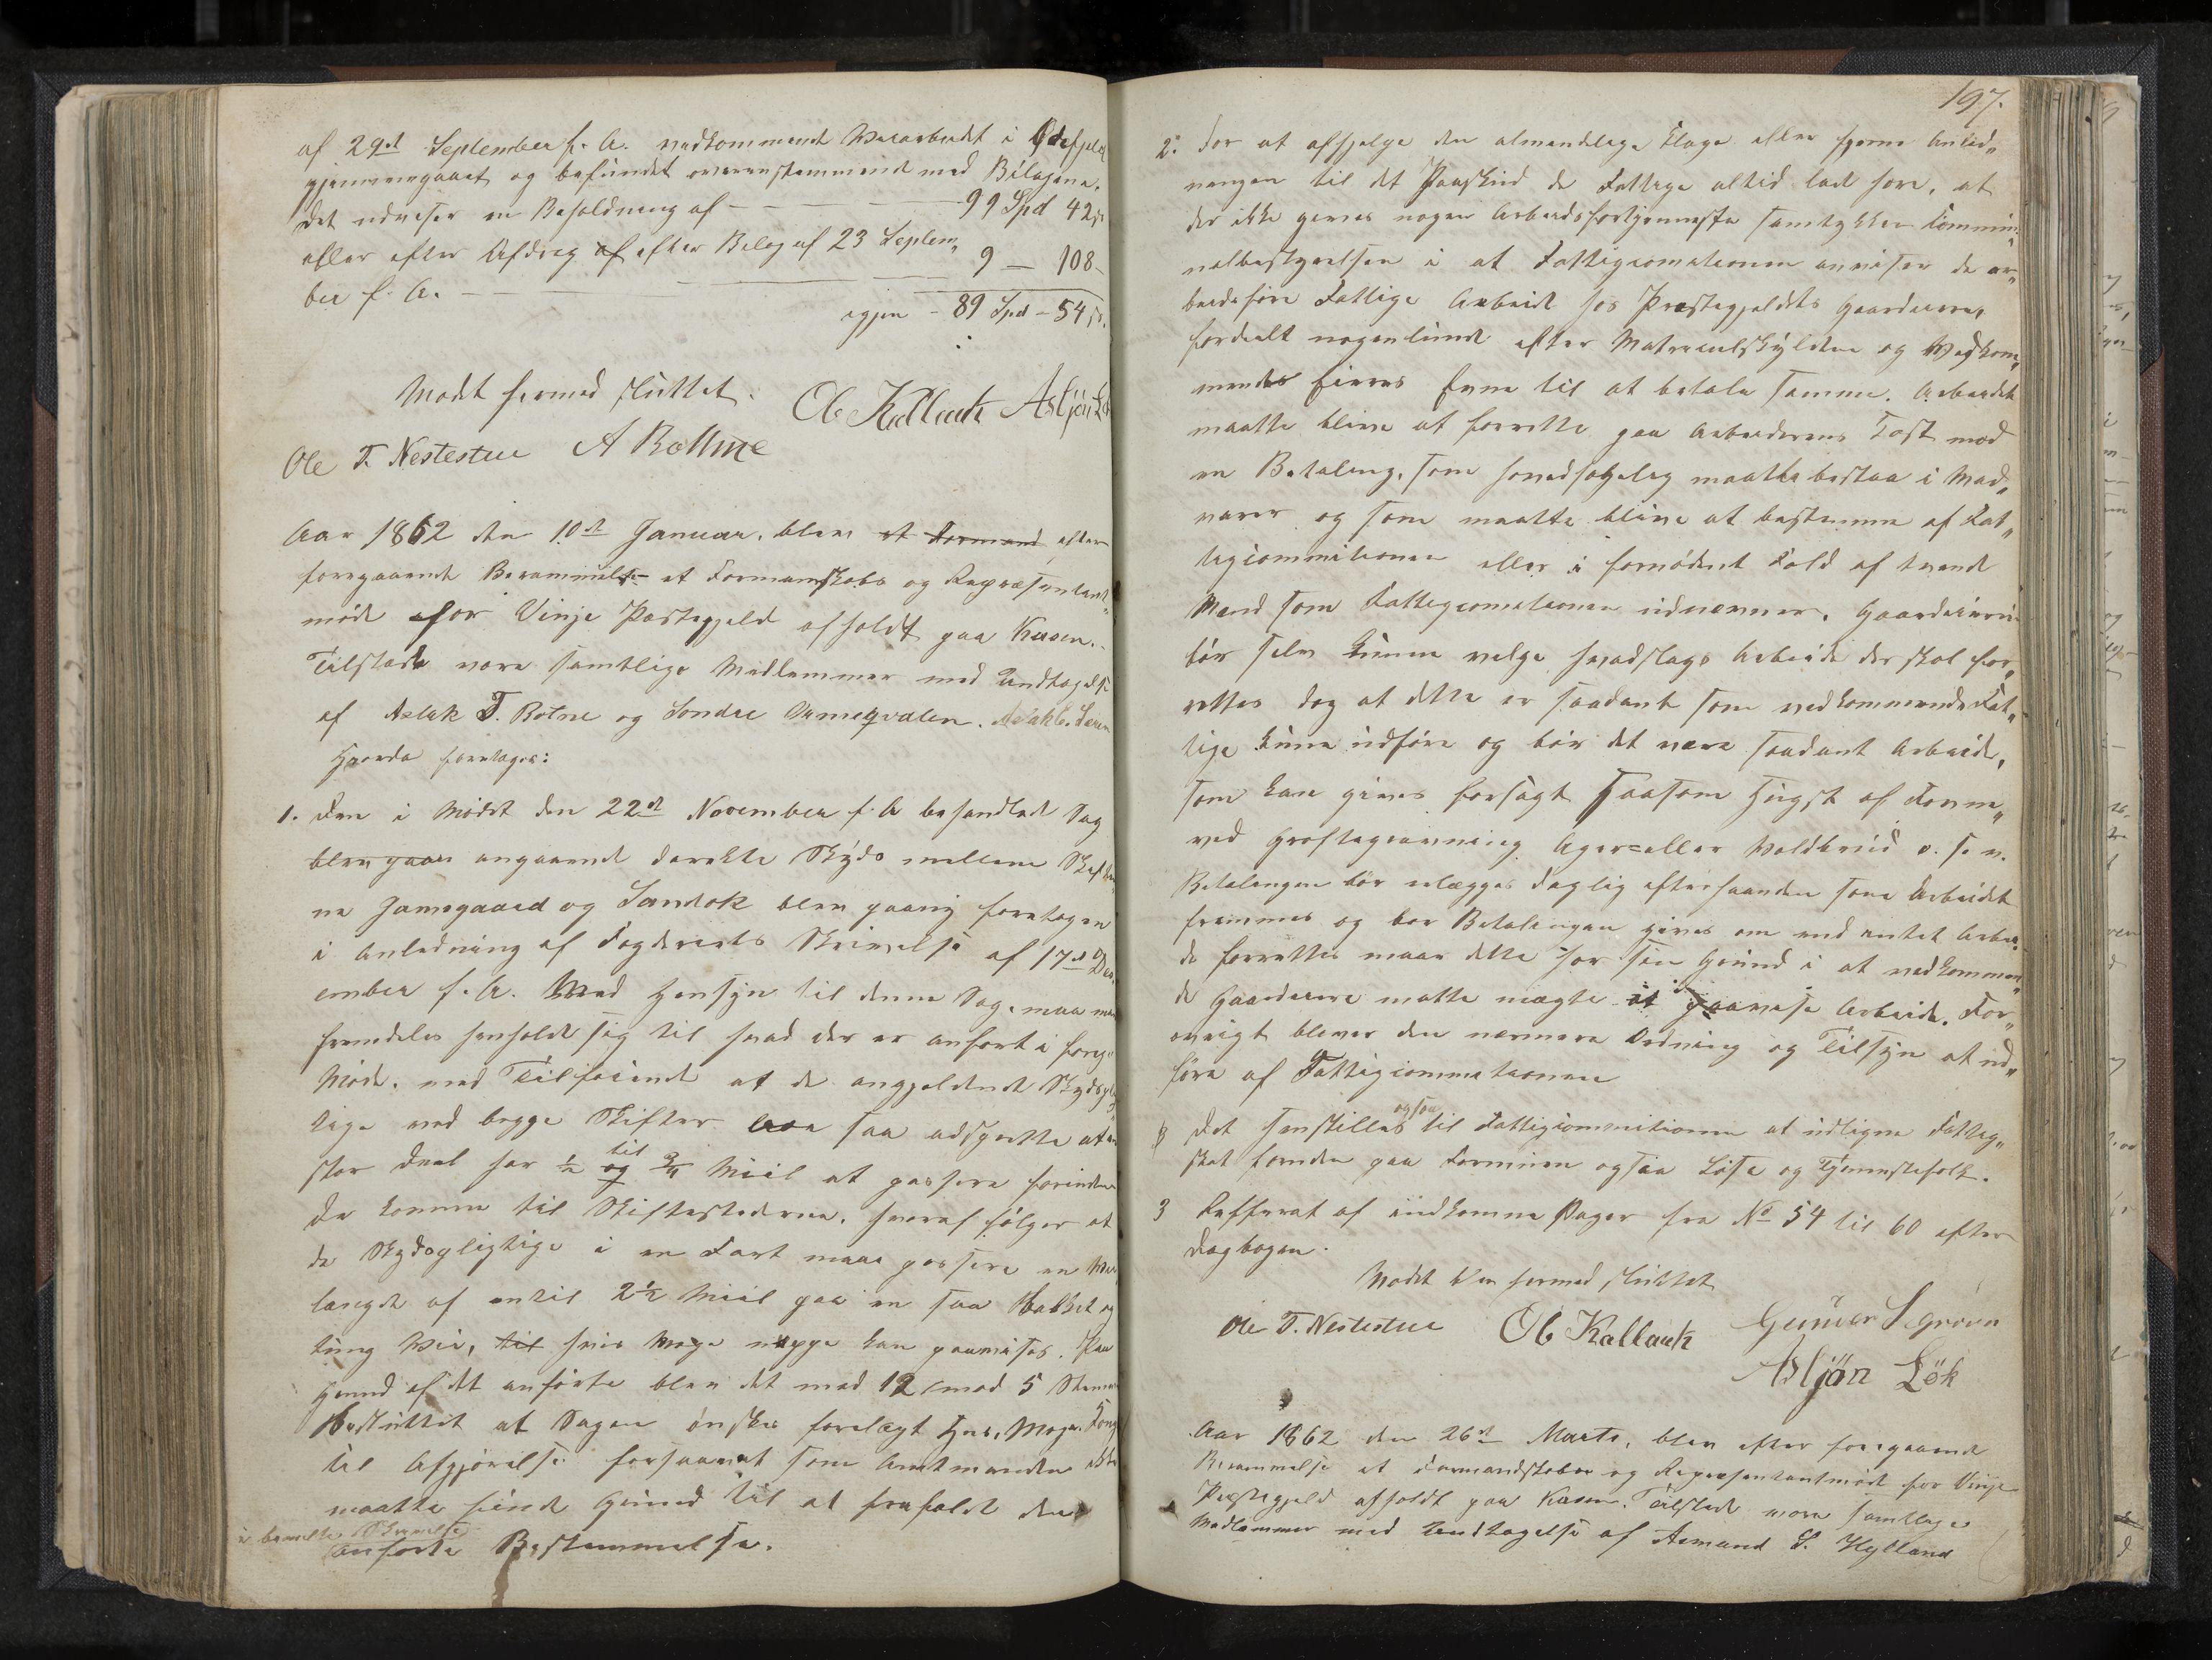 af 29de September f. A. vedkommende Veiarbeidet i
gjennemgaaet og befundet overensstemmende med Bilagene.
Det udviser en Beholdning af — 99 Spd 42 s
eller efter Afdrag af efter Bilag af 23 Septem„
ber f. A. — 9 — 108 -
igjen - 89 Spd - 54 s.
Mødet hermed sluttet.
Ole T. Nestestue
Aar 1862 den 10de Januar, blev et Formand efter
foregaaende Berammelse et Formandskabs og Repræsentant„
møde for Vinje Præstegjeld afholdt paa Kaasen.
Tilstæde vare samtlige Medlemmer med Undtagelse
af Aslak T. Bøtne og Sondre
foretoges:
1. Den i Mødet den 22de November f. A behandlede Sag
blev paa angaaende directe Skyds mellem
ne Jamsgaard og Sandok blev paany foretagen
i Anledning af Fogderiets Skrivelse af 17de De
ember f. A. Med Hensyn til denne Sag, maa man
fremdeles henholde sig til hvad der er anført i forrige
Møde, med Tilføiende at de angjeldende Skydspl
tige ved begge Skifter saa adspredte at en
stor Deel har ½ og til ¾ Miil at passere forinden
de komme til Skiftestederne, hvoraf følger at
de Skydspligtige i en Fart maa passere en Vei
længde af indtil 2½ Miil paa en saa bakket og
tung Vei, til hvis Mage neppe kan paavises. Paa
Grund af det anførte blev det med 12 mod 5 Stemmer
besluttet at Sagen ønskes forelagt Hans Maje. Kong
til Afgjørelse forsaavidt som Amtmanden ikke
maatte finde Grund til at frafalde den
i bemeldte Skrivelse
anførte Bestemmelse.
197.
2. For at afhjelpe den almindelige Klage eller fjerne Anled„
ningen til det Paaskud de Fattige altid lade høre, at
der ikke gives nogen Arbeidsfortjeneste samtykker Commu„
nalbestyrelsen i at Fattigcommisionen anviser de ar„
beidsføre Fattige Arbeide hos Præstegjeldets Gaardeiere,
fordeelt nogenlunde efter Matriculskylden og Vedkom„
mendes Evne til at betale samme. Arbeidet
maatte blive at forrette paa Arbeiderens Kost mod
en Betaling, som hovedsagelig maatte bestaa i Mad„
varer og som maatte blive at bestemme af Fat„
tigcommitionen eller i fornødent Fald af tvende
Mænd som Fattigcommitionen udnævner. Gaardeieren
bør selv kunne velge hvadslags Arbeide der skal for„
rettes dog at dette er saadant som vedkommende Fat„
tige kunne udføre og bør det være saadant Arbeide,
som kan gives forsagt saasom Hugst af Fonne„
ved Grøftegravning Ager= eller Voldbrud o. s. v.
Betalingen bør erlægges daglig efterhaanden som Arbeidet
fremmes og bør Betalingen gives om end intet Arbei
de forrettes naar dette har sin Grund i at vedkommen„
de Gaardeiere matte negte at paavise Arbeide. For„
øvrigt bliver den nærmere Ordning og Tilsyn at ud„
føre af Fattigcommisionen
Det henstilles ogsaa til Fattigcommitionen at udligne Fattig„
skat foruden paa Formuen ogsaa Løse og Tjenestefolk.
3 Refferat af indkomne Sager fra No 54 til 60 efter
Dagbogen.
Mødet blev hermed sluttet
Ole T. Nestestue
Asljön Lök
Aar 1862 den 26de Marts, blev efter foregaaende
Berammelse et Formandskabs og Repræsentantmøde for Vinje
Præstegjeld afholdt paa Kaasen. Tilstede vare samtlige
Medlemmer med Undtagelse af Aamund S. Hylland